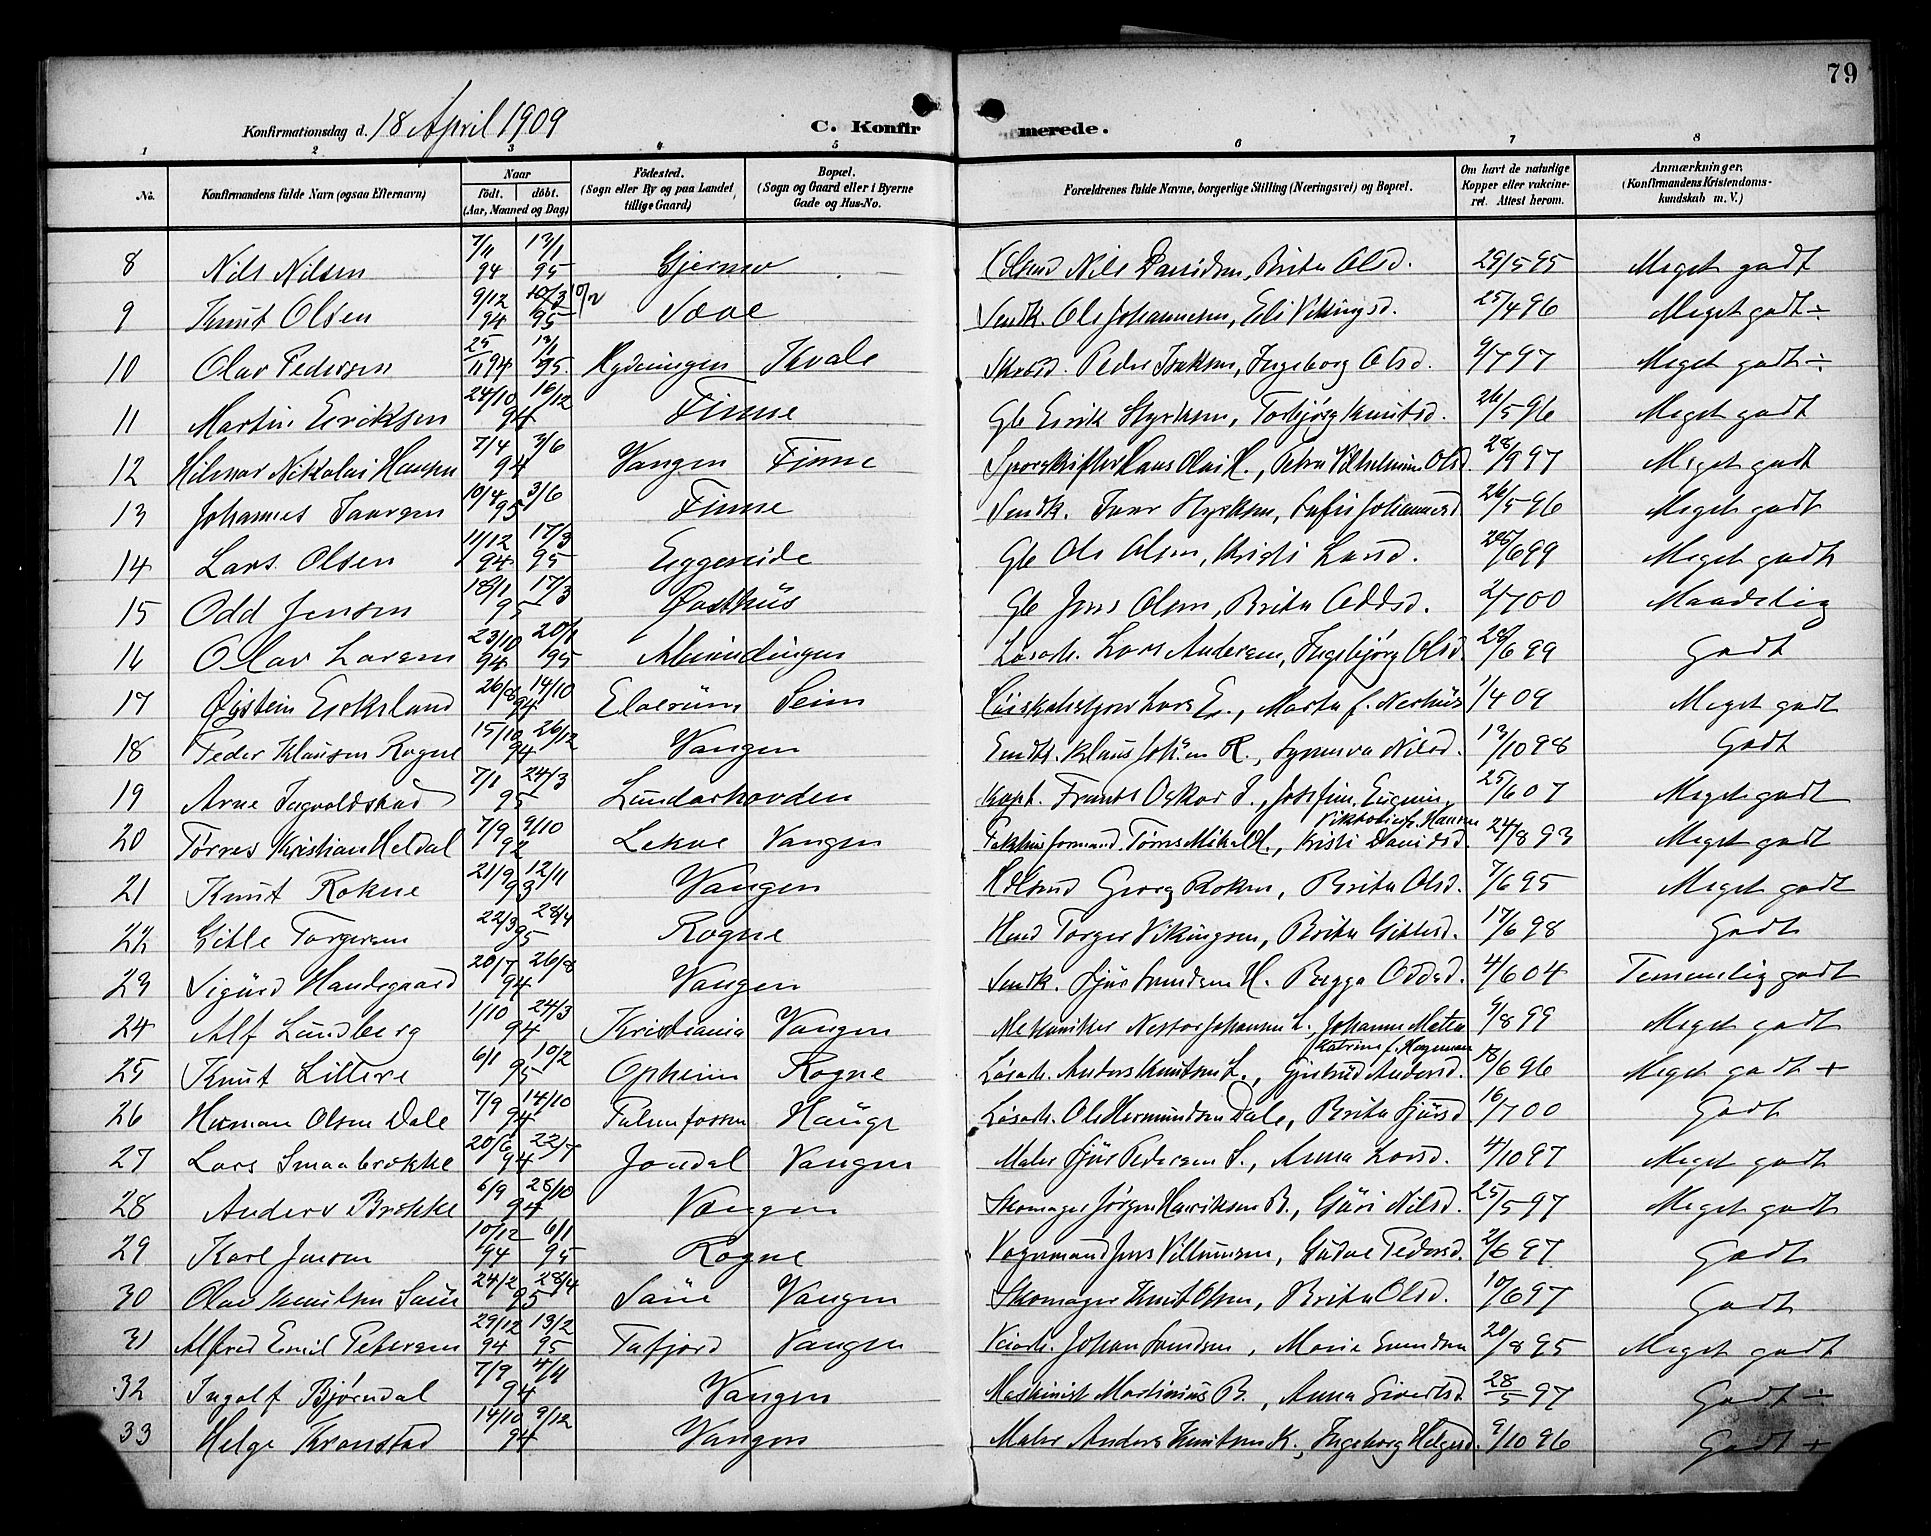 79
Konfirmationsdag d. 18 April 1909
C. Konfirmerede.
1 2 3 4 5 6 7 8
No. Konfirmandens fulde Navn (ogsaa Efternavn) Naar født. døbt. (Aar, Maaned og Dag) Födested. (Sogn eller By og paa Landet, tillige Gaard) Bopæl. (Sogn og Gaard eller i Byerne Gade og Hus-No. Forældrenes fulde Navne, borgerlige Stilling (Næringsvei) og Bopæl. Om havt de naturlige Kopper eller vakcineret. Attest herom. Anmærkninger. (Konfirmandens Kristendomskundskab m. V.)
8 Nils Nilsen 7/11 94 13/1 95 Gjerme Nils Davidsen, Brita Olsd. 29/5 95 Meget godt
9 Knut Olsen 9/12 94 10/2 95 Sæve Smbk. Ole Johannesen, Eli Vikingsd. 25/4 96 Meget godt ÷
10 Olav Pedersen 25/11 94 13/1 95 Kvale Peder Isaksen, Ingeborg Olsd. 9/7 97 Meget godt ÷
11 Martin Eriksen 24/10 16/12 94 Finne Gbr Eirik Styrksen, Torbjørg Knutsd. 26/5 96 Meget godt
12 Hilmar Nikolai Hansen 7/4 3/6 94 Vangen Finne Sporskifter Hans Olai H., Petra Vilhelmine Olsd. 28/9 97 Meget godt
13 Johannes Ivarsen 10/4 3/6 95 Finne Smbk. Ivar Styrksen, Johannesd. 26/5 96 Meget godt
14 Lars Olsen 11/12 94 17/3 95 Eggereide Gbr Ole Olsen, Kristi Larsd. 25/6 99 Meget godt
15 Odd Jensen 18/1 17/3 95 Østhus Gbr Jens Olsen, Brita Oddsd. 2/7 00 Maadelig
16 Olav Larsen 23/10 94 20/1 95 Almindingen Løsarb. Lars Andersen, Ingebjørg Olsd. 28/6 99 Godt
17 Øystein Eskeland 26/8 14/10 94 Elverum Seim Lars E., Marta f. Nerhus 1/4 09 Meget godt
18 Peder Klausen Rogne 15/10 26/12 94 Vangen Klaus Joh.sen R., Synneva Nilsd. 13/10 98 Godt
19 Arne Ingvoldstad 7/1 24/3 95 Lundarhovden Kapt. Frants Oskar I., Josefine Eugenie Viktoria f. Hansen 25/6 07 Meget godt
20 Tørres Kristian Heldal 7/9 9/10 92 Lekve Vangen Pakhusformand Tørres Mikal H., Kristi Davidsd. 24/8 93 Meget godt
21 Knut Rokne 21/9 12/11 93 Vangen Georg Roksn, Brita Olsd. 7/6 95 Meget godt
22 Gitle Torgersen 22/3 28/4 95 Rogne Torger Vikingsen, Brita Gitlesd. 17/6 98 Godt
23 Sigurd Handegaard 20/7 26/8 94 Vangen Smbk. Sjur Smndsen H. Begga Oddsd. 4/6 04 Temmelig godt
24 Alf Lundberg 1/10 24/3 94 Kristiania Vangen Mekaniker Nestor Johansen L., Johanne Matea Katrine f. Hageman 9/8 99 Meget godt
25 Knut Littere 6/1 10/2 95 Opheim Rogne Løsarb. Anders Knutsen L., Gjertrud Andersd. 18/6 96 Meget godt +
26 Herman Olsen Dale 7/9 14/10 94 Hauge Løsarb. Ole Hermundsen Dale, Brita Sjursd 16/7 00 Godt
27 Lars Smaabrekke 20/6 22/7 94 Jondal Vangen Maler Sjur Pedersen S., Anna Larsd. 4/10 97 Meget godt
28 Anders Brekke 6/9 28/10 94 Vangen Skomager Jørgen Henriksen B., Guri Nilsd. 25/5 97 Meget godt
29 Karl Jensen 10/12 94 6/1 95 Rogne Vognmand Jens Villumsen, Gudve Pedersd. 2/6 97 Godt
30 Olav Knutsen Saue 24/2 28/4 95 Saue Vangen Skomager Knut Olsen, Brita Olsd. 10/6 97 Godt
31 Alfred Emil Petersen 29/12 94 13/2 95 Tafjord Vangen Veiarb. Johan Svendsen, Marie Svendsen 20/8 95 Meget godt
32 Ingolf Bjørndal 7/9 4/11 94 Vangen Maskinist Martinius B., Anna Sivertsd. 28/5 97 Godt ÷
33 Helge Kronstad 14/10 9/12 94 Vangen Maler Anders Knutsen K., Ingeborg Helgesd. 9/10 96 Godt +